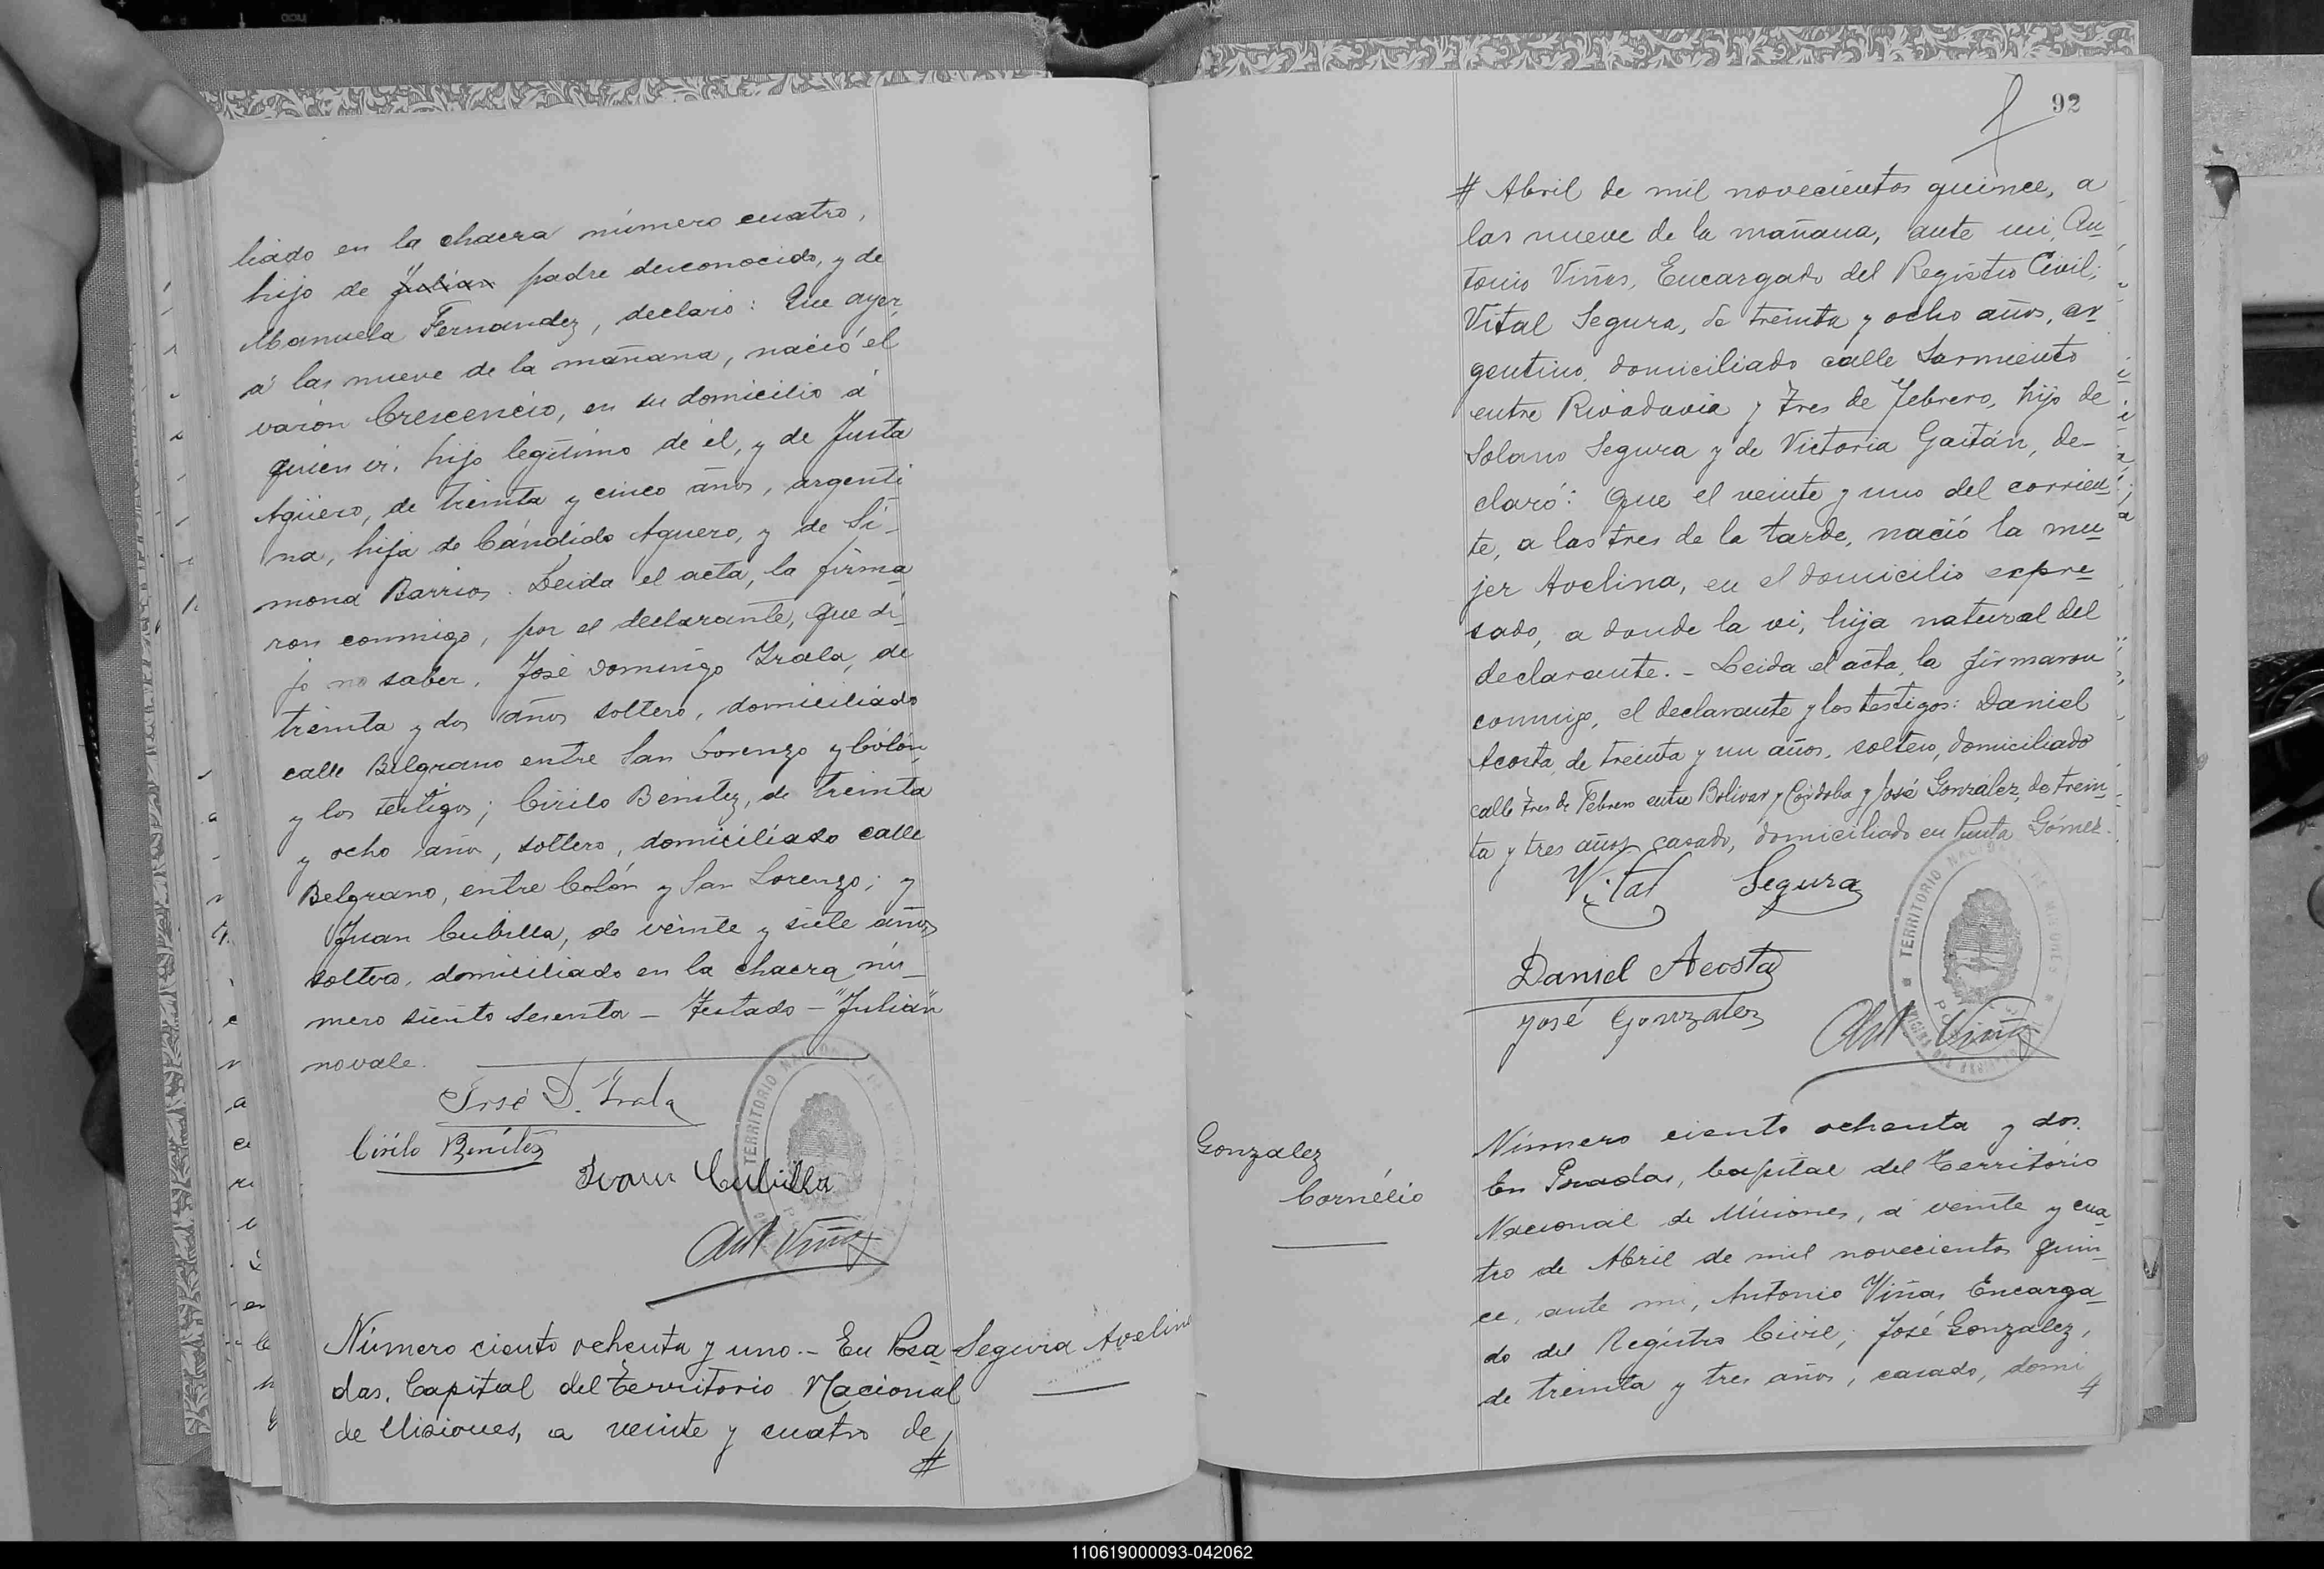 liado en la chacra número cuatro,
hijo de Julián padre desconocido, y de
Manuela Fernandez, declaró: Que ayer,
á las nueve de la mañana, nació el
varón Crescencio, en su domicilio á
quien vi, hijo legítimo de él, y de Justa
Agüero, de treinta y cinco años, argenti
na, hija de Cándido Aguero, y de Si-
mona Barrios. Leida el acta, la firma
ron conmigo, por el declarante, que di-
jo no saber, José Domingo Irala, de
treinta y dos años soltero, domiciliado
calle Belgrano entre San Lorenzo y Colón,
y los testigos; Cirilo Benítez, de treinta
y ocho años, soltero, domiciliado calle
Belgrano, entre Colón y San Lorenzo; y
Juan Cubilla, de veinte y siete años
soltero, domiciliado en la chacra nú-
mero ciento sesenta - Testado - "Julián"
no vale.
José D. Irala
Cirilo Benítez
Juan Cubilla
Ant Viñas
TERRITORIO NACIONAL DE MISIONES
Número ciento ochenta y uno.- En Posa-
das, Capital del Territorio Nacional
de Misiones, a veinte y cuatro de
#
Segura Avelina
92
# Abril de mil novecientos quince, a
las nueve de la mañana, ante mi, An-
tonio Viñas, Encargado del Registro Civil;
Vital Segura, de treinta y ocho años, ar-
gentino, domiciliado calle Sarmiento
entre Rivadavia y Tres de Febrero, hijo de
Solano Segura y de Victoria Gaitán, de-
claró: Que el veinte y uno del corrien-
te, a las tres de la tarde, nació la mu-
jer Avelina, en el domicilio expre-
sado, a donde la vi, hija natural del
declarante.- Leida el acta, la firmaron
conmigo, el declarante y los testigos: Daniel
Acosta, de treinta y un años, soltero, domiciliado
calle Tres de Febrero entre Bolivar y Córdoba y José González, de trein-
ta y tres años, casado, domiciliado en Punta Gómez.
Vital Segura
Daniel Acosta
José Gonzalez
Ant Viñas
TERRITORIO NACIONAL DE MISIONES
Gonzalez
Cornélio
Número ciento ochenta y dos.
En Posadas, Capital del Territorio
Nacional de Misiones, á veinte y cua-
tro de Abril de mil novecientos quin-
ce, ante mi, Antonio Viñas Encarga-
do del Registro Civil; José Gonzalez,
de treinta y tres años, casado, domi
#
110619000093-042062